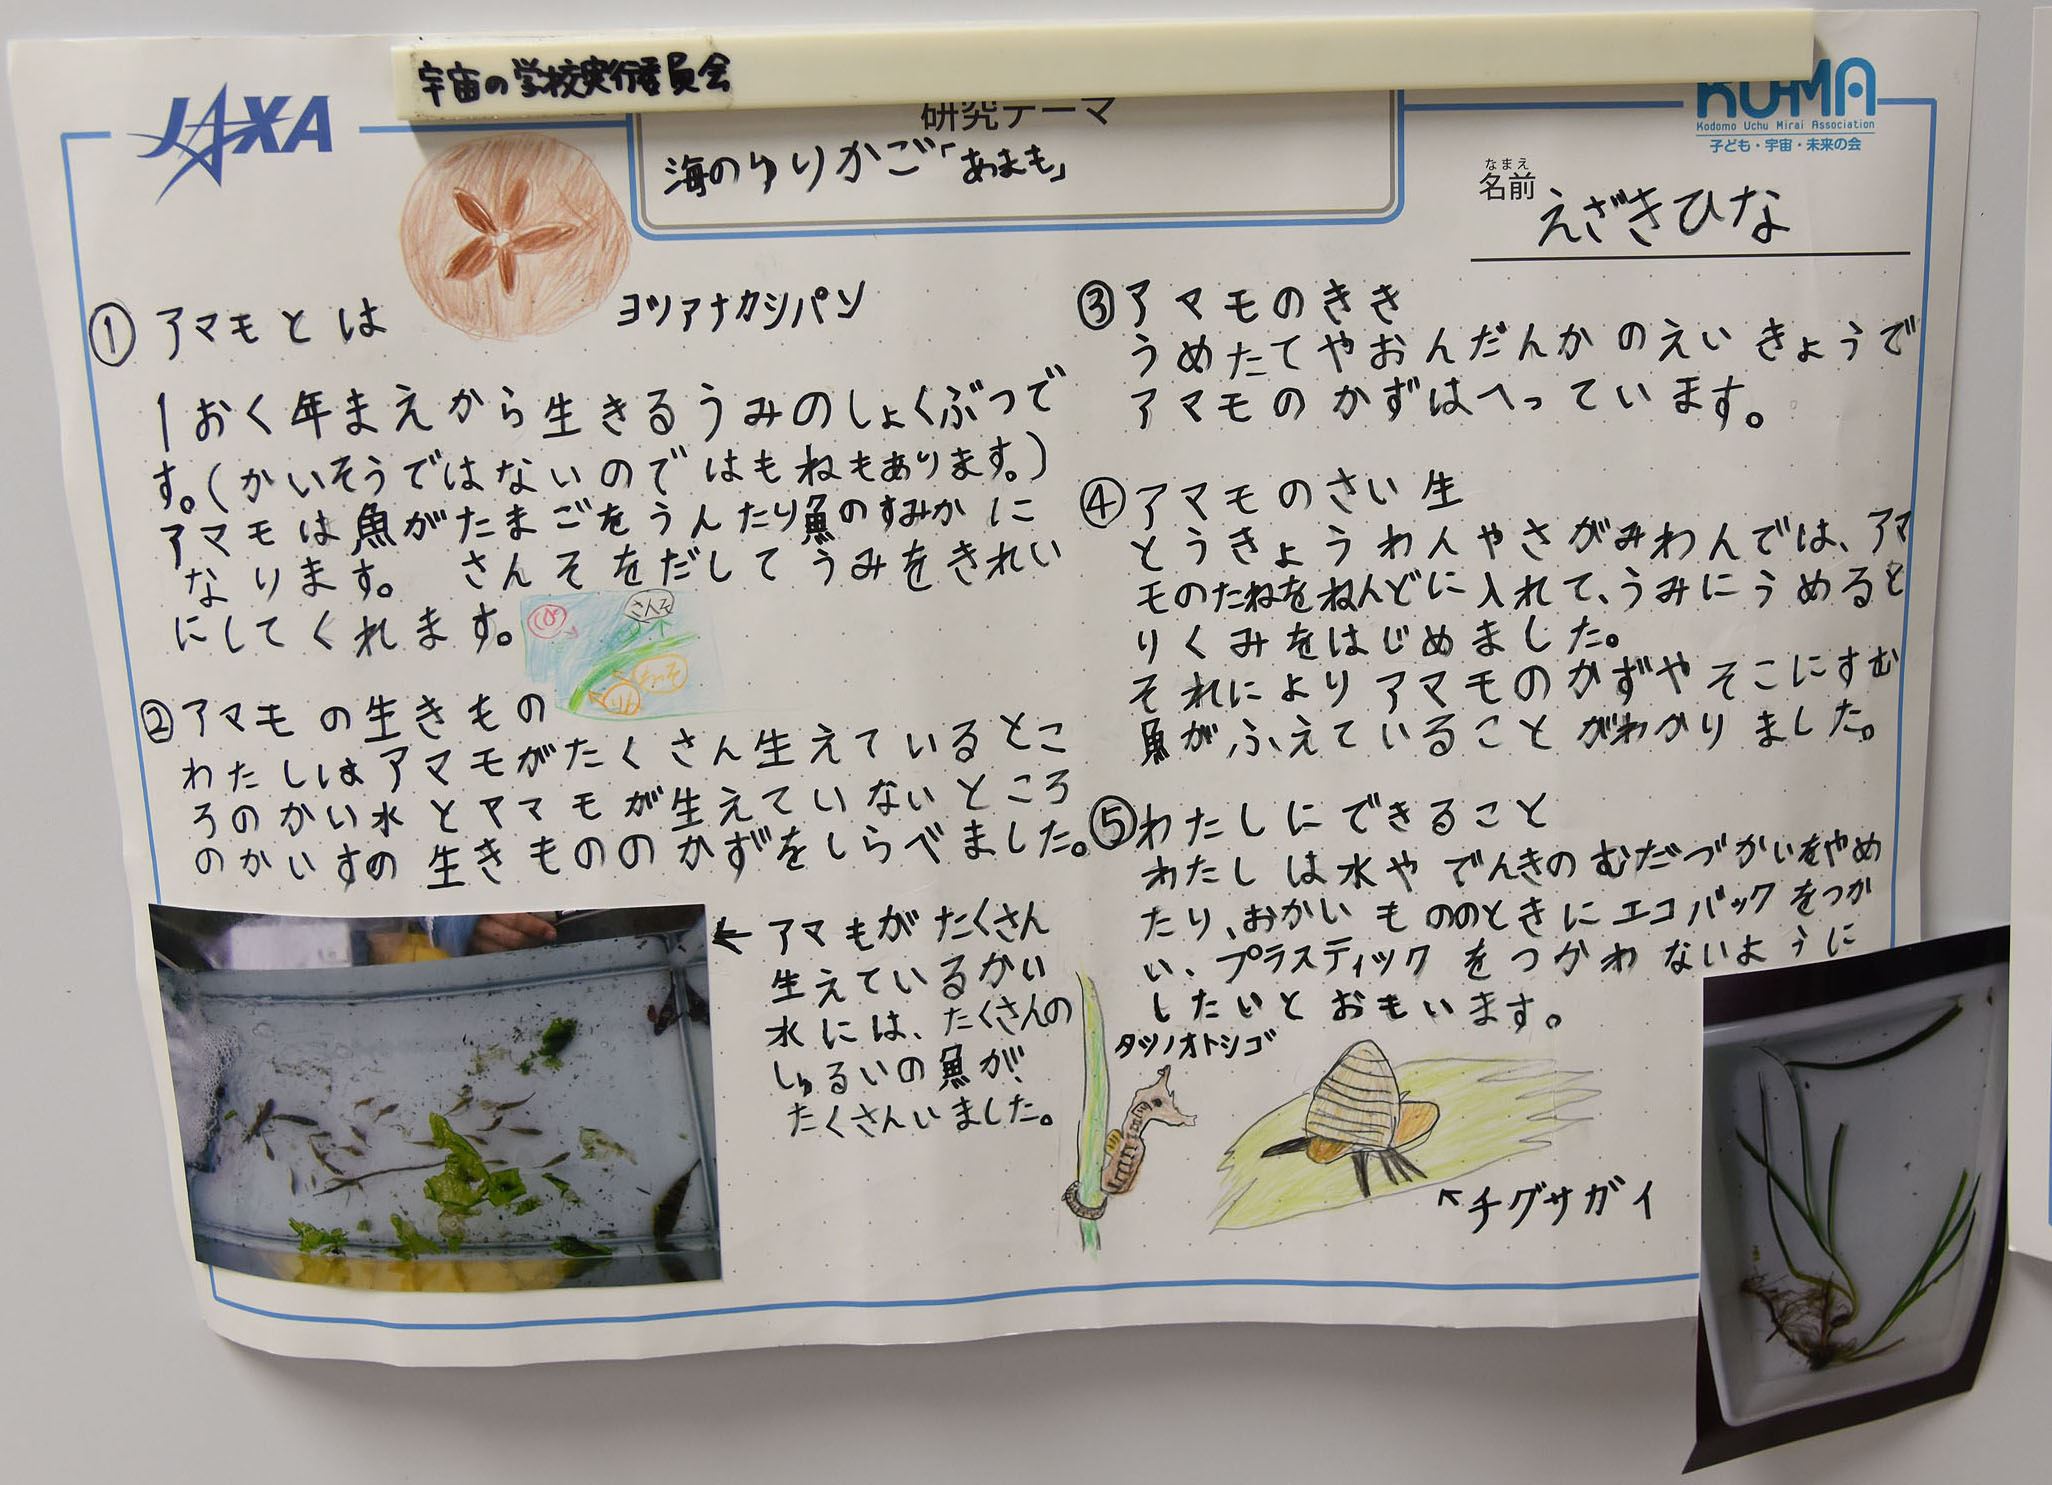 宇宙の学校実行委員会
JAXA
研究テーマ
海のゆりかご「あまも」
KU-MA
Kodomo Uchu Mirai Association
子ども・宇宙・未来の会
なまえ
名前
えざきひな
ヨツアナカシパン
① アマモとは
1おく年まえから生きるうみのしょくぶつで
す。(かいそうではないのではもねもあります。)
アマモは魚がたまごをうんたり魚のすみかに
なります。 さんそをだしてうみをきれい
にしてくれます。
さんそ
ちっそ
りん
②アマモの生きもの
わたしはアマモがたくさん生えているとこ
ろのかい水とアマモが生えていないところ
のかいすの生きもののかずをしらべました。
← アマモがたくさん
生えているかい
水には、たくさんの
しゅるいの魚が
たくさんいました。
③アマモのきき
うめたてやおんだんかのえいきょうで
アマモのかずはへっています。
④アマモのさい生
とうきょうわんやさがみわんでは、アマ
モのたねをねんどに入れて、うみにうめると
りくみをはじめました。
それによりアマモのかずやそこにすむ
魚がふえていることがわかりました。
⑤わたしにできること
わたしは水やでんきのむだづかいをやめ
たり、おかいもののときにエコバックをつか
い、プラスティックをつかわないように
したいとおもいます。
タツノオトシゴ
↖チグサガイ